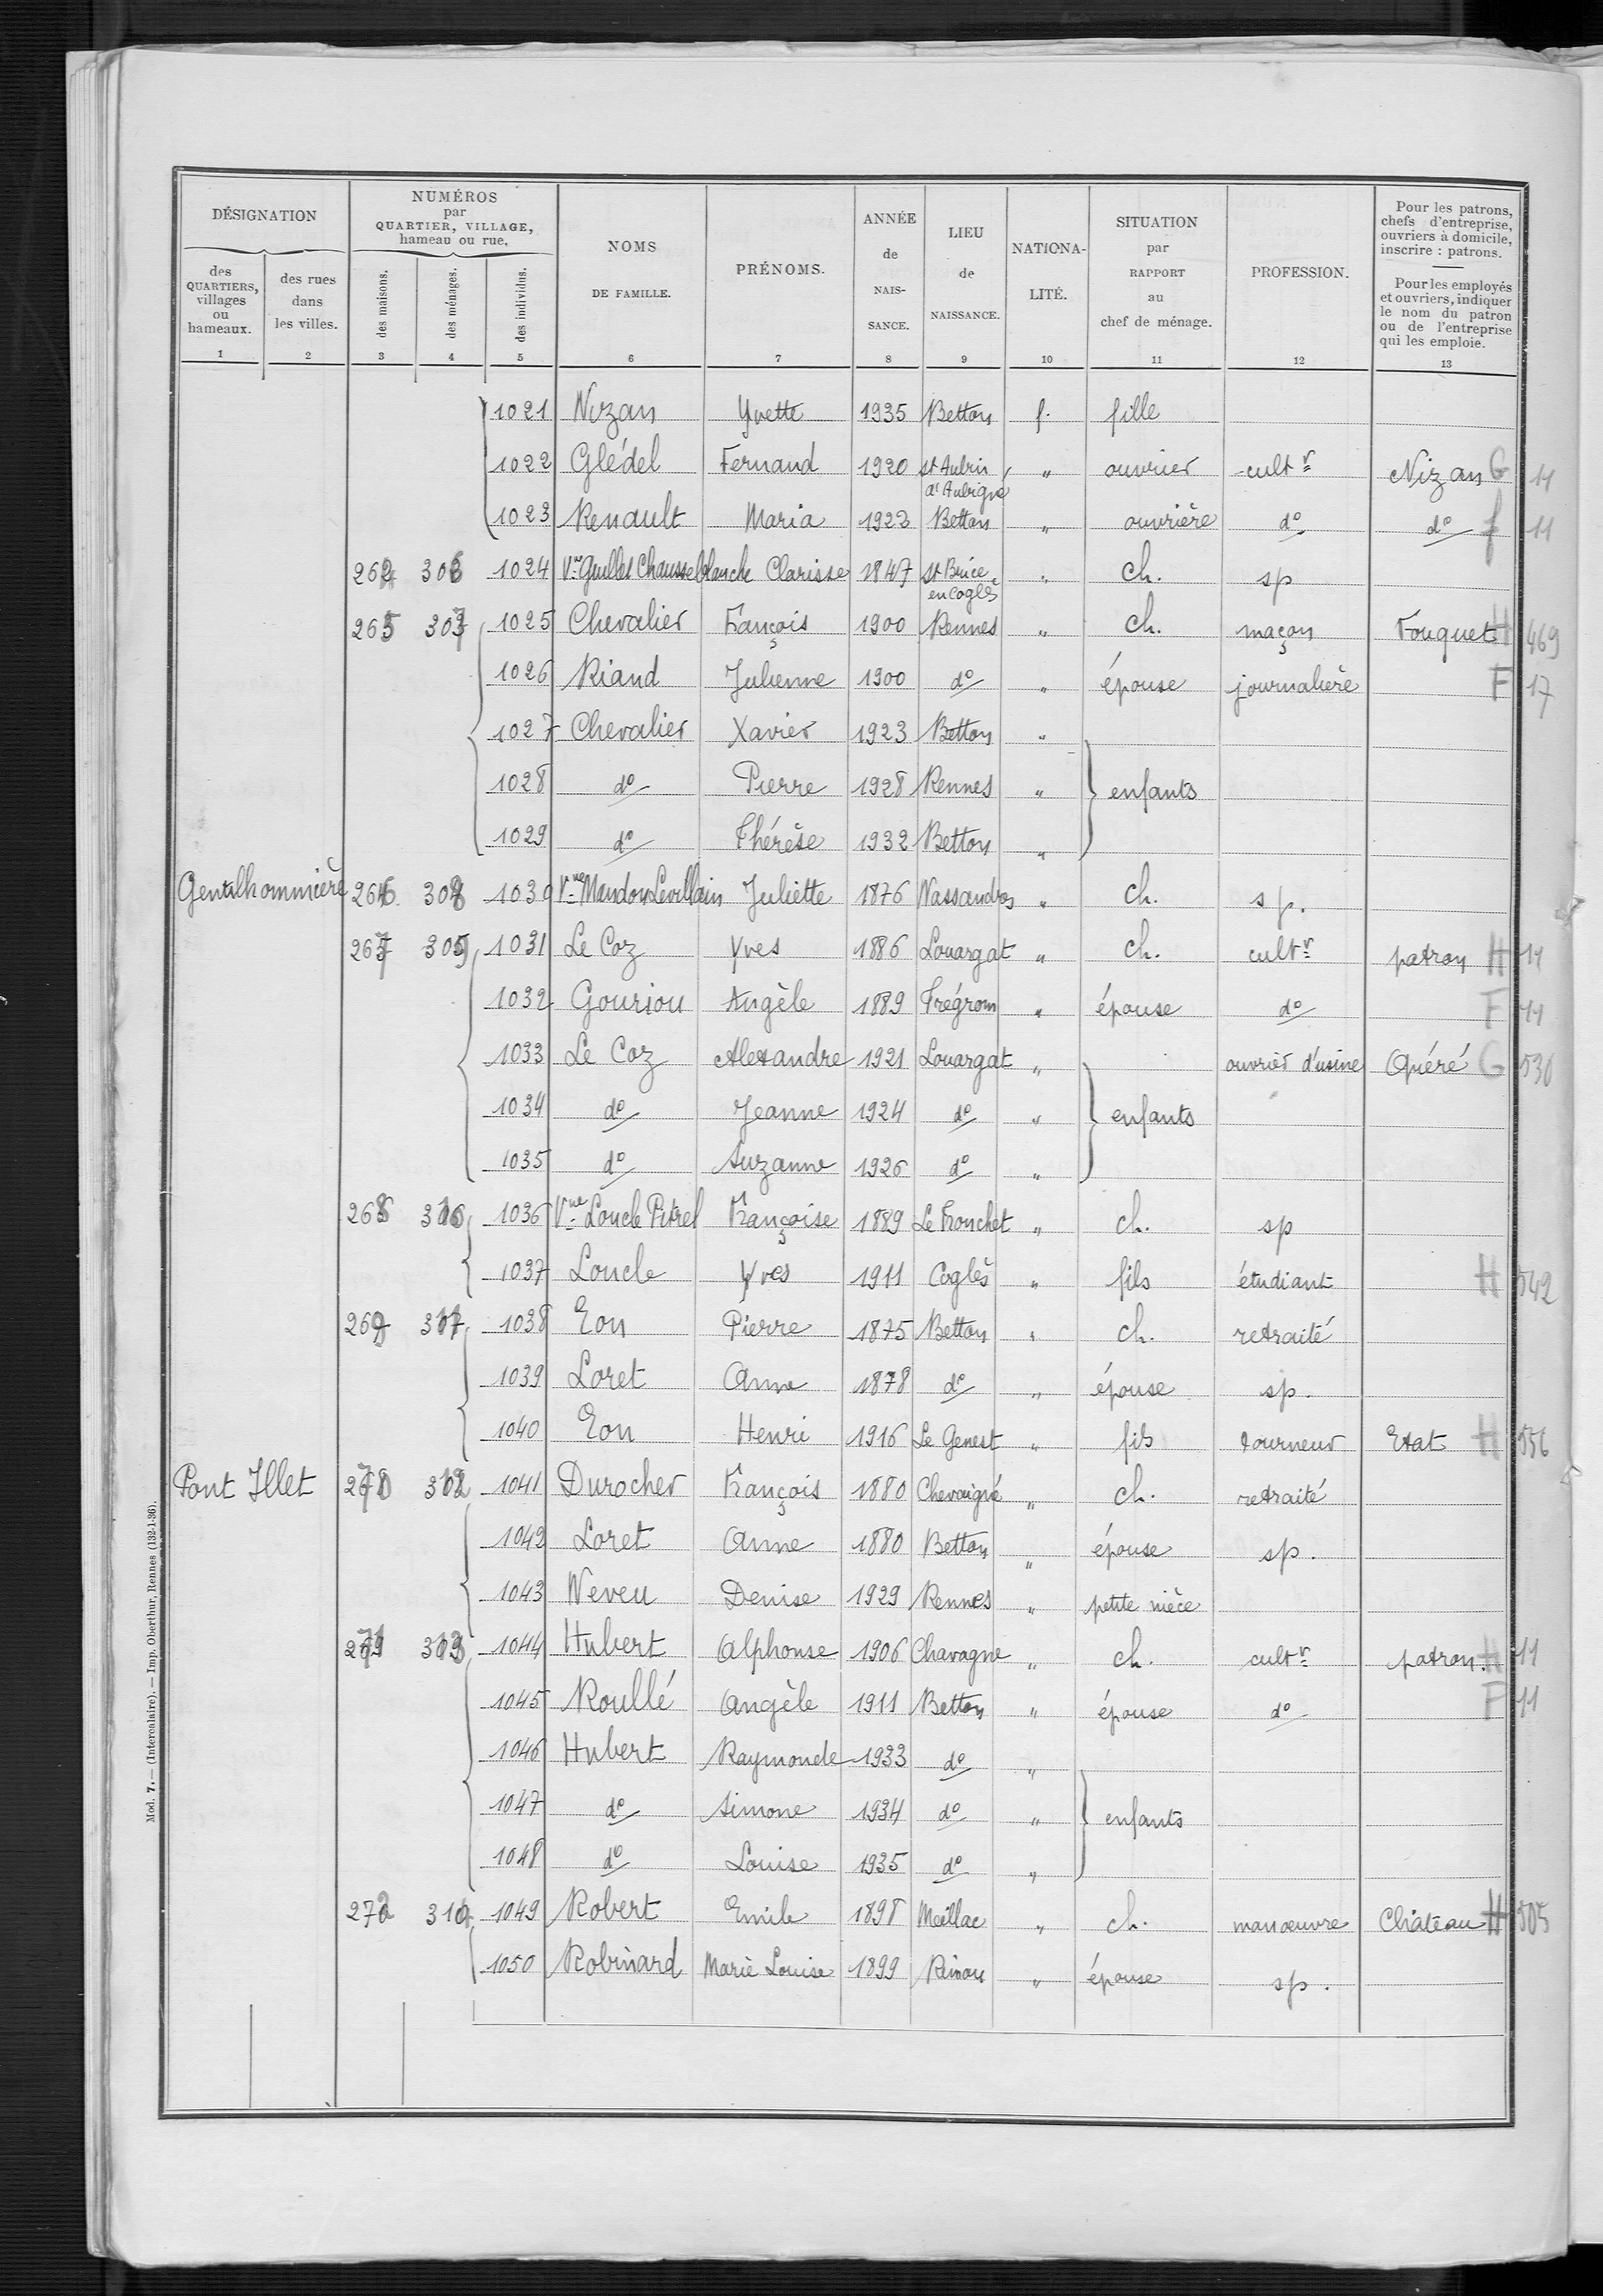 DÉSIGNATION
des QUARTIERS, villages ou hameaux.
des rues dans les villes.
NUMÉROS par QUARTIER, VILLAGE, hameau ou rue.
des maisons.
des ménages.
des individus.
NOMS DE FAMILLE.
PRÉNOMS.
ANNÉE de NAIS-SANCE.
LIEU de NAISSANCE.
NATIONA-LITÉ.
SITUATION par RAPPORT au chef de ménage.
PROFESSION.
Pour les patrons, chefs d'entreprise, ouvriers à domicile, inscrire : patrons.
Pour les employés et ouvriers, indiquer le nom du patron ou de l'entreprise qui les emploie.
1 2 3 4 5 6 7 8 9 10 11 12 13
1021 Nizan Yvette 1935 Betton f. fille
1022 Glédel Fernand 1920 St Aubin d'Aubigné " ouvrier cultr Nizan G 11
1023 Renault Maria 1923 Betton " ouvrière do do f 11
264 306 1024 Vve Chausseblanche Clarisse 1847 St Brice en Coglès " ch. sp
265 307 1025 Chevalier François 1900 Rennes " ch. maçon Fouquet H 469
1026 Riand Julienne 1900 do " épouse journalière F 17
1027 Chevalier Xavier 1923 Betton "
1028 do Pierre 1928 Rennes " enfants
1029 do Thérèse 1932 Betton "
Gentilhommière 266 308 1030 Vve Mandon Levillain Juliette 1876 Nassandres " ch. sp.
267 309 1031 Le Coz Yves 1886 Louargat " ch. cultr patron H 11
1032 Gouriou Angèle 1889 Trégrom " épouse do F 11
1033 Le Coz Alexandre 1921 Louargat " ouvrier d'usine Quéré G 530
1034 do Jeanne 1924 do " enfants
1035 do Suzanne 1926 do "
268 310 1036 Vve Loucle Pitrel Françoise 1889 Le Tronchet " ch. sp
1037 Loucle Yves 1911 Coglès " fils étudiant H 542
269 311 1038 Eon Pierre 1875 Betton " ch. retraité
1039 Loret Anne 1878 do " épouse sp.
1040 Eon Henri 1916 Le Genest " fils tourneur Etat H 556
Pont Illet 270 312 1041 Durocher François 1880 Chevaigné " ch. retraité
1042 Loret Anne 1880 Betton " épouse sp.
1043 Neveu Denise 1929 Rennes " petite nièce
271 313 1044 Hubert Alphonse 1906 Chavagne " ch. cultr patron. H 11
1045 Roullé Angèle 1911 Betton " épouse do F 11
1046 Hubert Raymonde 1933 do "
1047 do Simone 1934 do " enfants
1048 do Louise 1935 do "
272 314 1049 Robert Emile 1898 Meillac " ch. manœuvre Château H 505
1050 Robinard Marie Louise 1899 Rimou " épouse sp.
Mod. 7. — (Intercalaire). — Imp. Oberthur, Rennes (132-1-36).